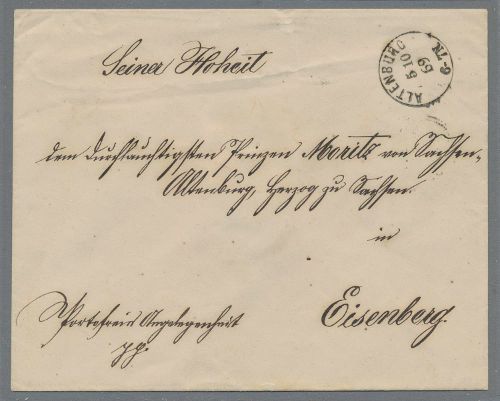 Seiner Hoheit
ALTENBURG
5 10
69
6-7N
dem Durchlauchtigsten Prinzen Moritz von Sachsen-
Altenburg, Herzog zu Sachsen.
in
Eisenberg.
Portofreie Angelegenheit